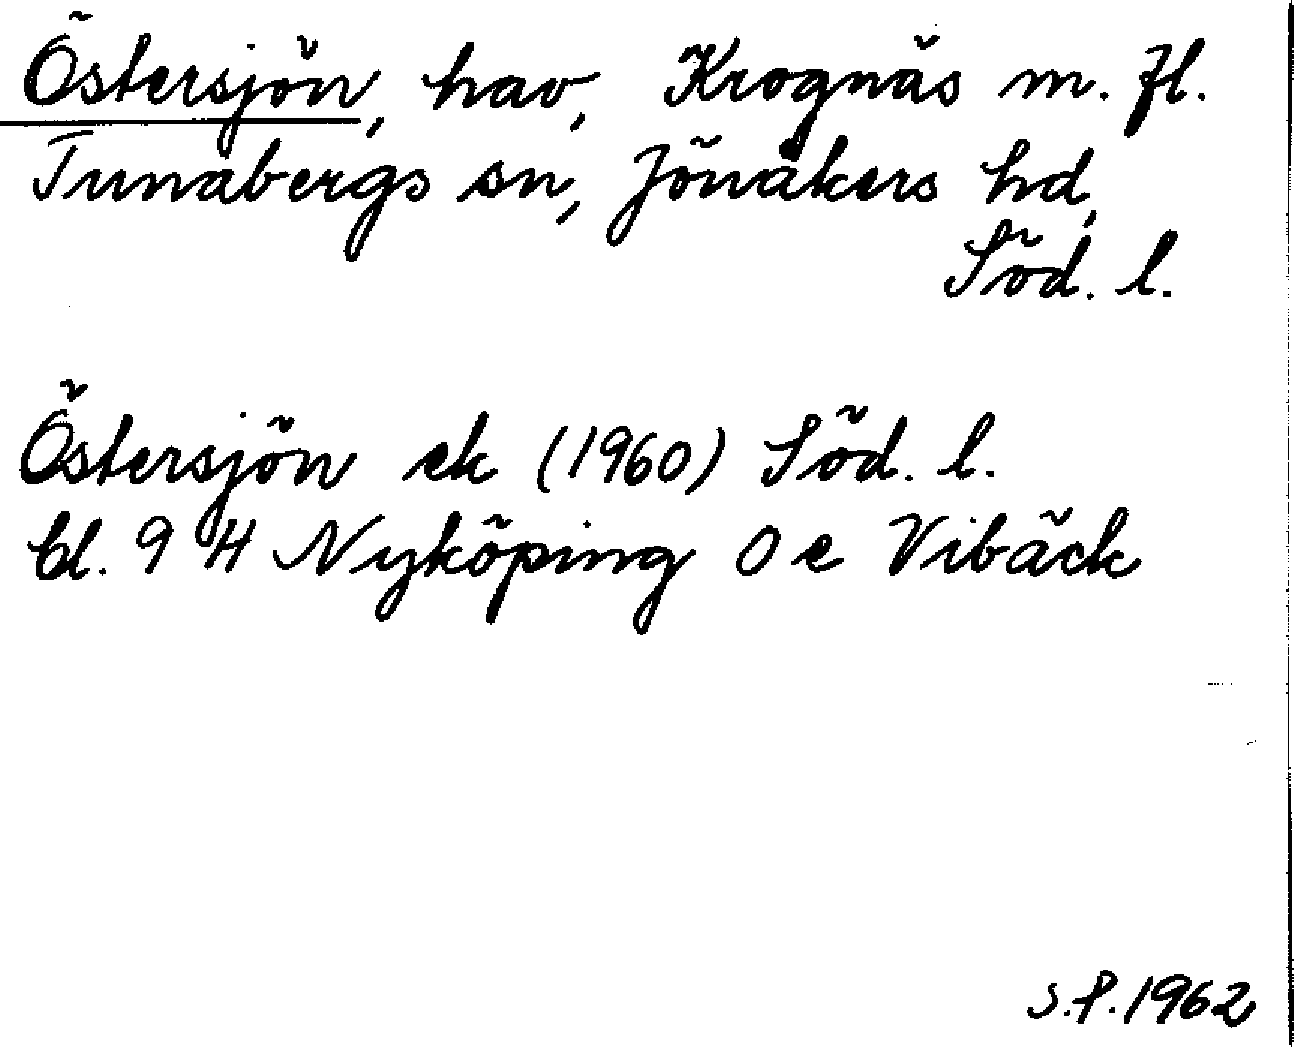 Östersjön, hav, Krognäs m. fl.
Tunabergs sn, Jönåkers hd,
Söd. l.
Östersjön ek (1960) Söd. l.
bl. 9 H Nyköping O e Vibäck
S.P. 1962